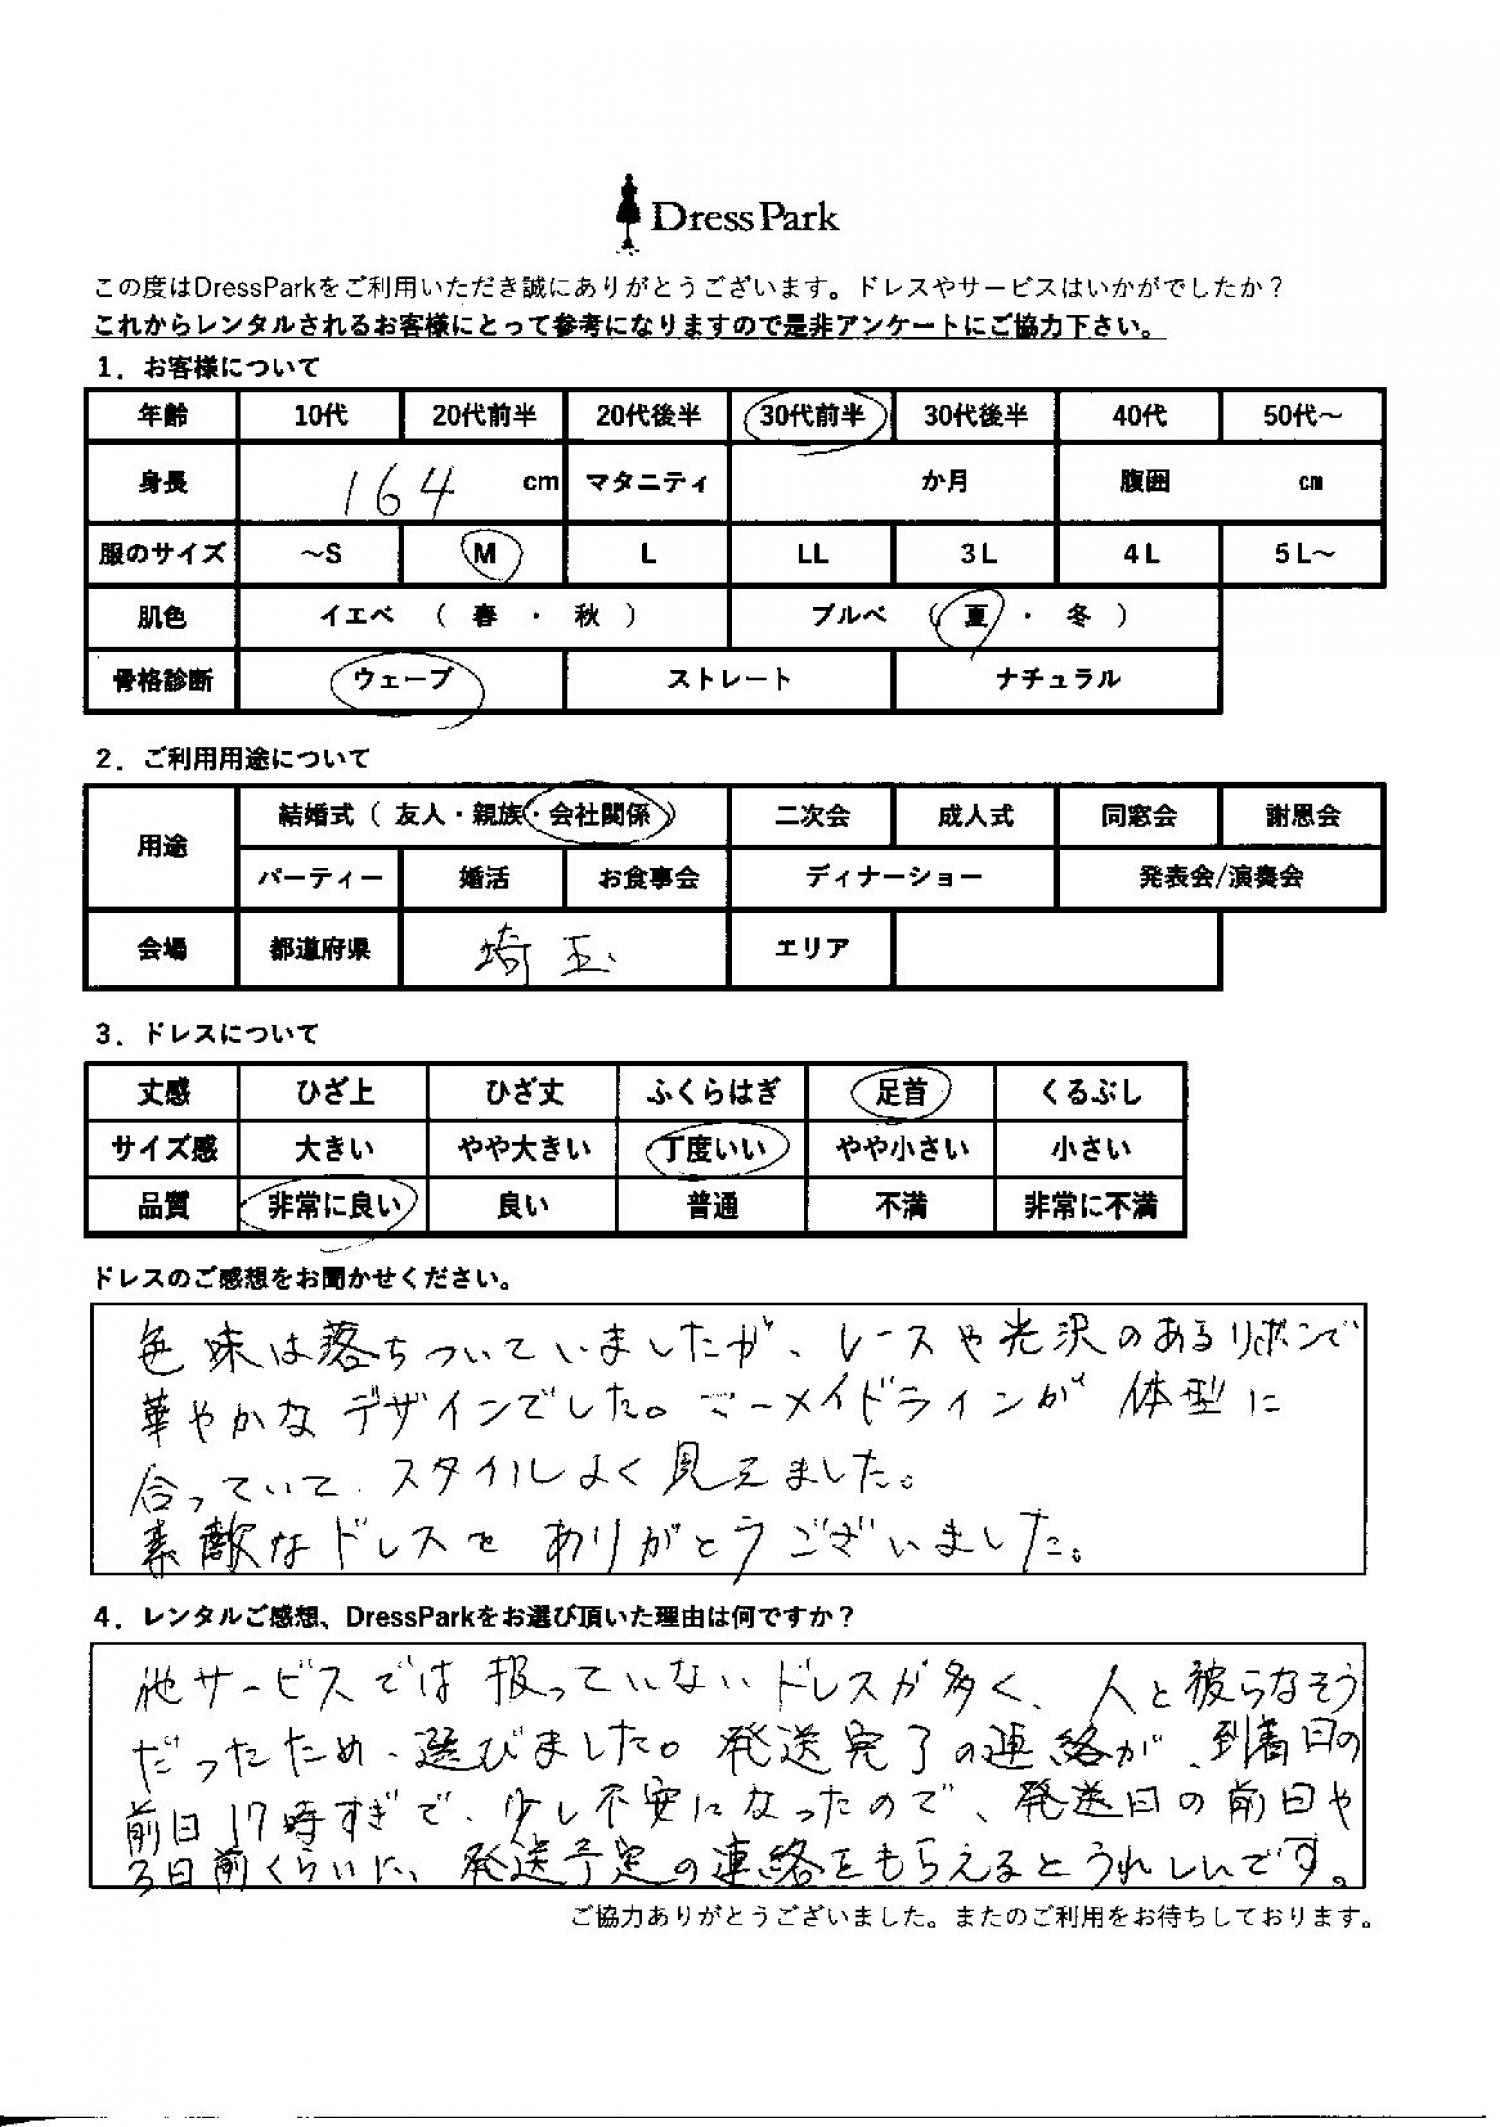 DressPark
この度はDressParkをご利用いただき誠にありがとうございます。ドレスやサービスはいかがでしたか？
これからレンタルされるお客様にとって参考になりますので是非アンケートにご協力下さい。
1．お客様について
年齢 10代 20代前半 20代後半 30代前半 30代後半 40代 50代～
身長 164 cm マタニティ か月 腹囲 cm
服のサイズ ～S M L LL 3L 4L 5L～
肌色 イエベ （ 春 ・ 秋 ） ブルベ （ 夏 ・ 冬 ）
骨格診断 ウェーブ ストレート ナチュラル
2．ご利用用途について
用途 結婚式（ 友人・親族・会社関係 ） 二次会 成人式 同窓会 謝恩会
パーティー 婚活 お食事会 ディナーショー 発表会/演奏会
会場 都道府県 埼玉 エリア
3．ドレスについて
丈感 ひざ上 ひざ丈 ふくらはぎ 足首 くるぶし
サイズ感 大きい やや大きい 丁度いい やや小さい 小さい
品質 非常に良い 良い 普通 不満 非常に不満
ドレスのご感想をお聞かせください。
色味は落ちついていましたが、レースや光沢のあるリボンで
華やかなデザインでした。マーメイドラインが体型に
合っていて、スタイルよく見えました。
素敵なドレスをありがとうございました。
4．レンタルご感想、DressParkをお選び頂いた理由は何ですか？
他サービスでは扱っていないドレスが多く、人と被らなそう
だったため、選びました。発送完了の連絡が、到着日の
前日17時すぎで、少し不安になったので、発送日の前日や
3日前くらいに、発送予定の連絡をもらえるとうれしいです。
ご協力ありがとうございました。またのご利用をお待ちしております。